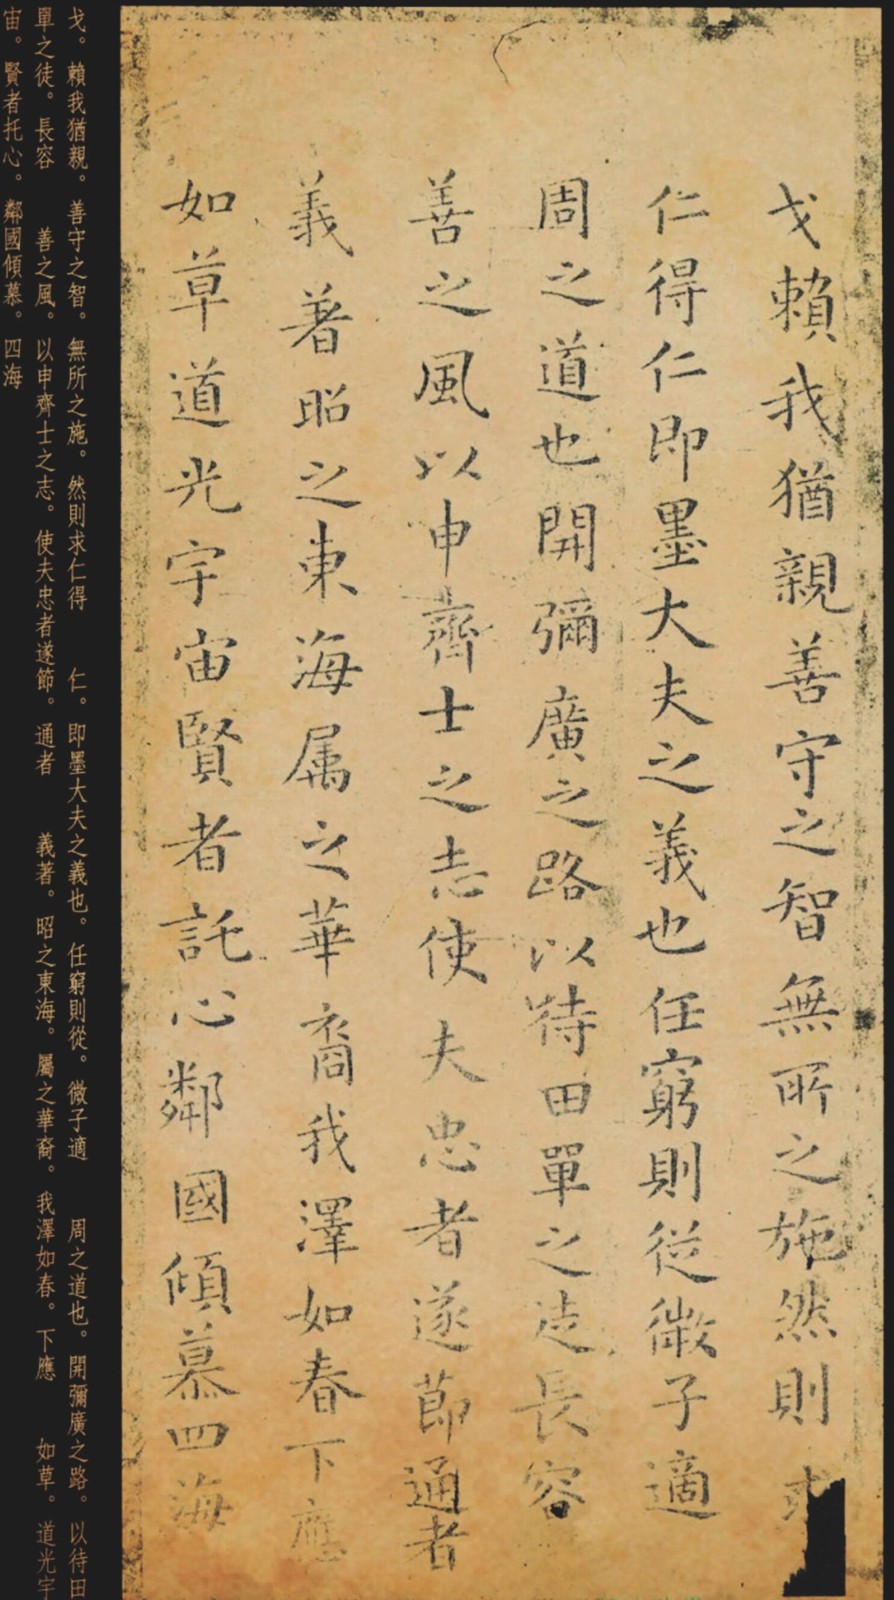 戈賴我猶親善守之智無所之施然則求
仁得仁即墨大夫之義也任窮則從微子適
周之道也開彌廣之路以待田單之徒長容
善之風以申齊士之志使夫忠者遂節通者
義著昭之東海属之華裔我澤如春下應
如草道光宇宙賢者託心鄰國傾慕四海
戈。賴我猶親。善守之智。無所之施。然則求仁得　仁。即墨大夫之義也。任窮則從。微子適　周之道也。開彌廣之路。以待田
單之徒。長容　善之風。以申齊士之志。使夫忠者遂節。通者　義著。昭之東海。屬之華裔。我澤如春。下應　如草。道光宇
宙。賢者托心。鄰國傾慕。四海